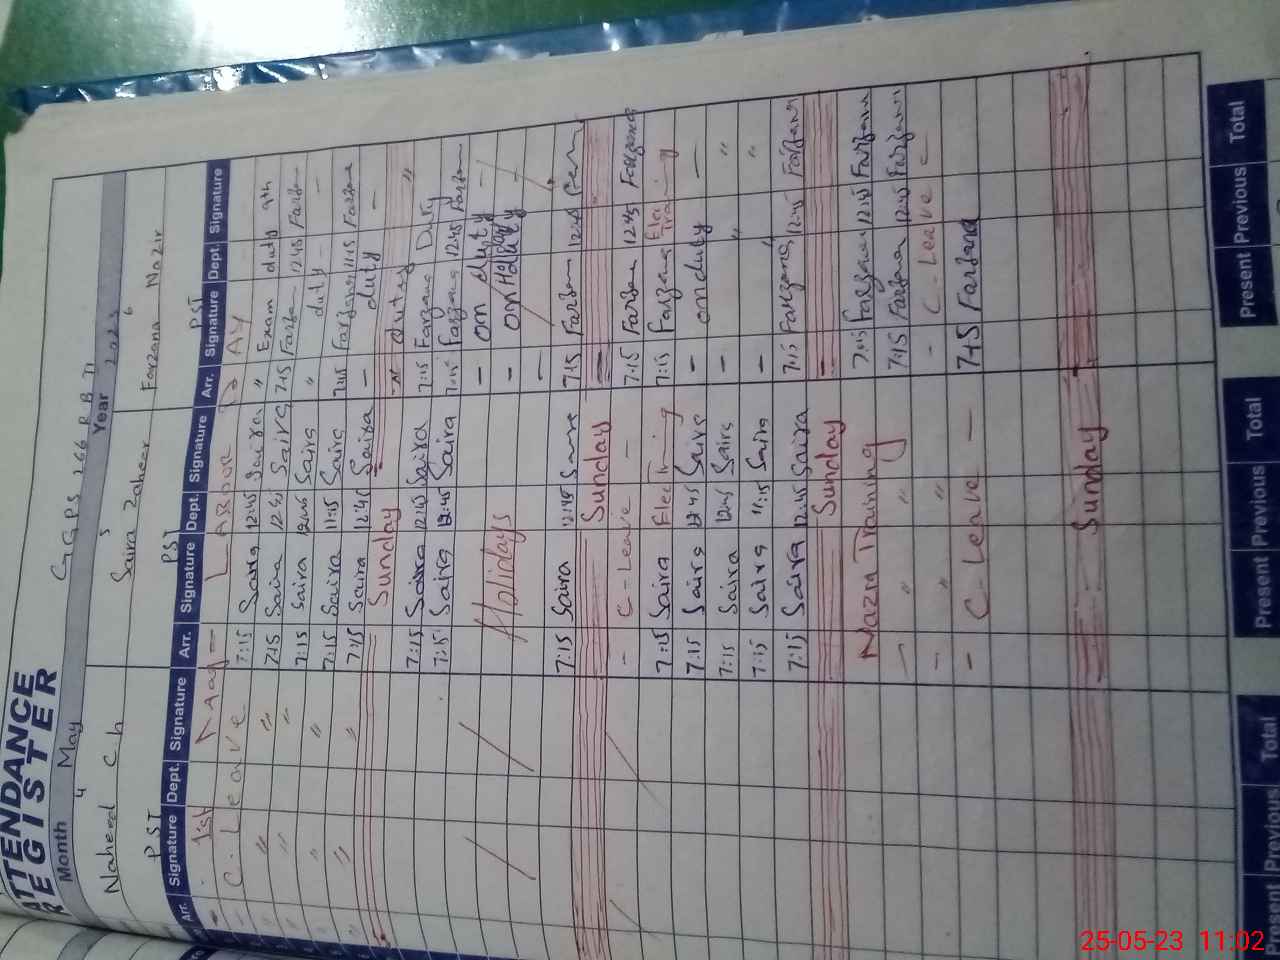 ATTENDANCE
REGISTER
G G P S 266 R B
Month May Year 2023
4 5 6
Naheed C.h Saira Zaheer Farzana Nazir
PST PST PST
Arr. Signature Dept. Signature Arr. Signature Dept. Signature Arr. Signature Dept. Signature
1st May - LABOOR DAY
C. Leave 7:15 Saira 12:45 Saira " Exam duty 9th
" " 7:15 Saira 12:45 Saira 7:15 Farzana 12:45 Farzana
" " 7:15 Saira 12:45 Saira " duty -
" " 7:15 Saira 11:15 Saira 7:15 Farzana 11:15 Farzana
" " 7:15 Saira 12:45 Saira - duty -
Sunday duty "
7:15 Saira 12:45 Saira 7:15 Farzana Duty
7:15 Saira 12:45 Saira 7:15 Farzana 12:45 Farzana
Holidays - on duty -
- on duty -
-
7:15 Saira 12:45 7:15 Farzana 12:45
Sunday
- C-Leave - 7:15 Farzana 12:45 Farzana
7:15 Saira Elec Training 7:15 Farzana Elec Training
7:15 Saira 12:45 Saira - on duty -
7:15 Saira 12:45 Saira - " "
7:15 Saira 11:15 Saira - " "
7:15 Saira 12:45 Saira 7:15 Farzana 12:45 Farzana
Sunday
Nazra Training 7:15 Farzana 12:45 Farzana
- " " 7:15 Farzana 12:45 Farzana
- " " - C-Leave -
- C-Leave - 7:15 Farzana
Sunday
Present Previous Total Present Previous Total Present Previous Total
25-05-23 11:02